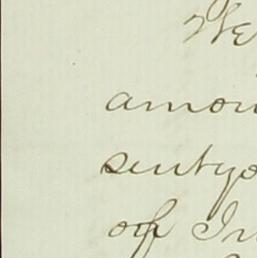 We
amou
sentyo
of In